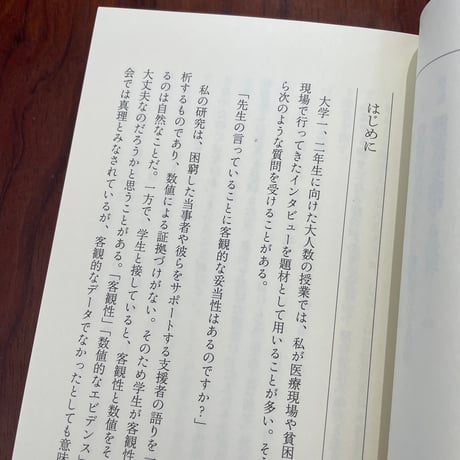 はじめに
大学一、二年生に向けた大人数の授業では、私が医療現場や貧困
現場で行ってきたインタビューを題材として用いることが多い。そ
ら次のような質問を受けることがある。
「先生の言っていることに客観的な妥当性はあるのですか？」
私の研究は、困窮した当事者や彼らをサポートする支援者の語りを
析するものであり、数値による証拠づけがない。そのため学生が客観性
るのは自然なことだ。一方で、学生と接していると、客観性と数値をそ
大丈夫なのだろうかと思うことがある。「客観性」「数値的なエビデンス」
会では真理とみなされているが、客観的なデータでなかったとしても意味